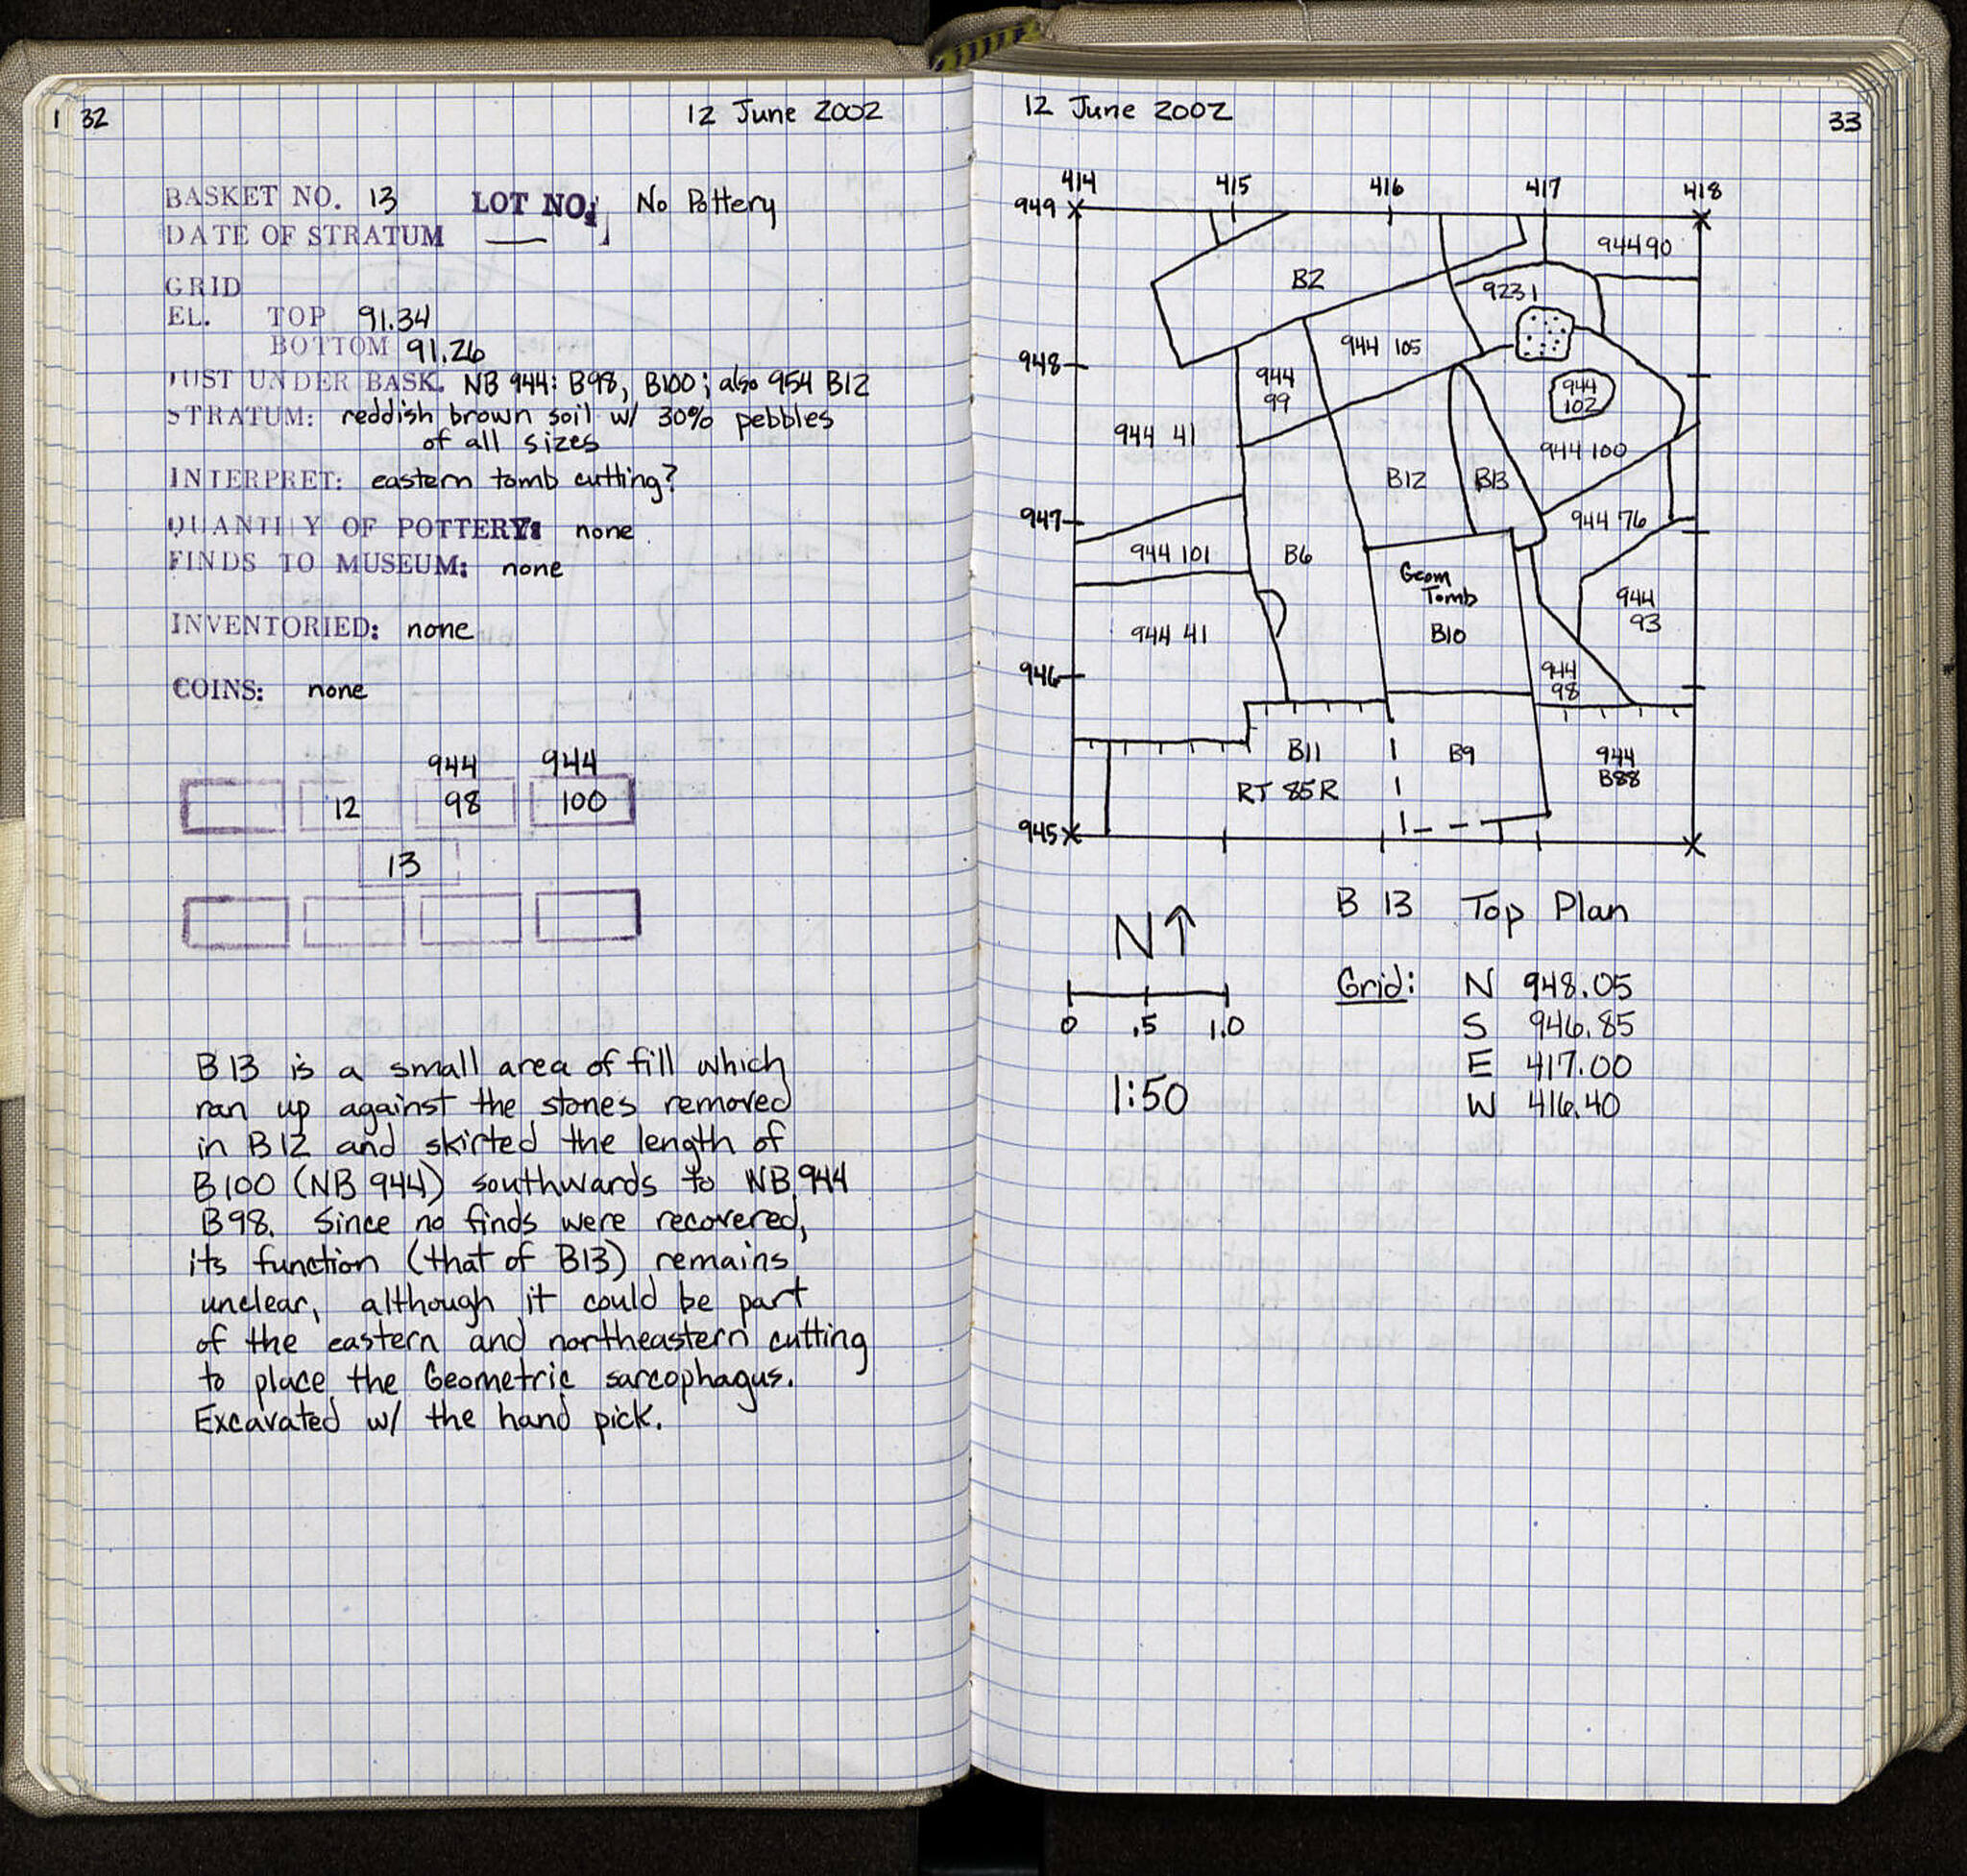 1 32
12 June 2002
BASKET NO. 13 LOT NO: No Pottery
DATE OF STRATUM —
GRID
EL. TOP 91.34
BOTTOM 91.26
JUST UNDER BASK. NB 944: B98, B100; also 954 B12
STRATUM: reddish brown soil w/ 30% pebbles
of all sizes
INTERPRET: eastern tomb cutting?
QUANTITY OF POTTERY: none
FINDS TO MUSEUM: none
INVENTORIED: none
COINS: none
944 944
12 98 100
13
B13 is a small area of fill which
ran up against the stones removed
in B12 and skirted the length of
B100 (NB 944) southwards to NB 944
B98. Since no finds were recovered,
its function (that of B13) remains
unclear, although it could be part
of the eastern and northeastern cutting
to place the Geometric sarcophagus.
Excavated w/ the hand pick.
12 June 2002
33
414 415 416 417 418
949
944 90
B2
9231
944 105
948
944
99
944
102
944 41
944 100
B12
B13
947
944 76
944 101
B6
Geom
Tomb
B10
944
93
944 41
946
944
98
B11
B9
944
B88
RT 85R
945
B 13 Top Plan
N↑
Grid: N 948.05
S 946.85
E 417.00
W 416.40
0 .5 1.0
1:50